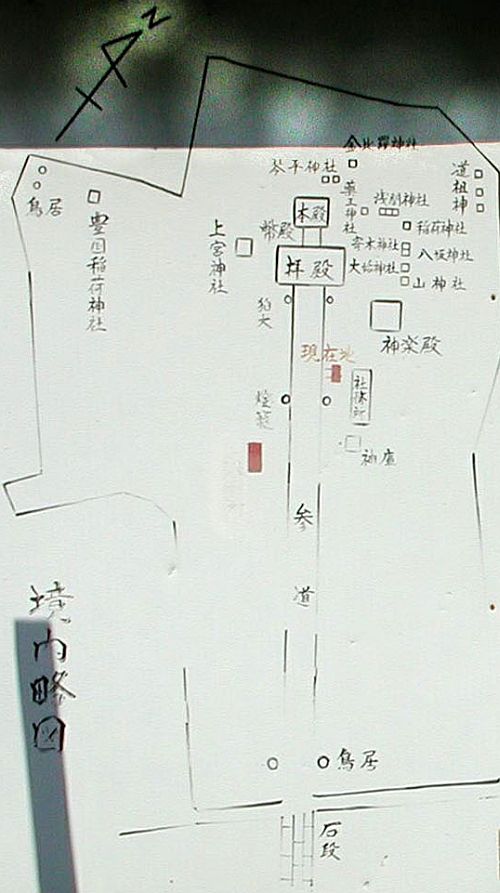 N
金比羅神社
琴平神社
道祖神
薬王神社
浅間神社
鳥居
豊国稲荷神社
上宮神社
幣殿
本殿
稲荷神社
寄木神社
八坂神社
拝殿
山神社
狛犬
神楽殿
現在地
社務所
燈籠
神庫
参道
境内略図
鳥居
石段